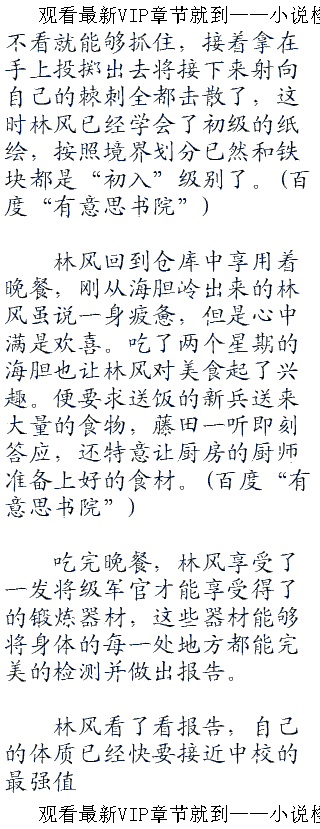 观看最新VIP章节就到——小说检
不看就能够抓住，接着拿在
手上投掷出去将接下来射向
自己的棘刺全都击散了，这
时林风已经学会了初级的纸
绘，按照境界划分已然和铁
块都是“初入”级别了。（百
度“有意思书院”）
林风回到仓库中享用着
晚餐，刚从海胆岭出来的林
风虽说一身疲惫，但是心中
满是欢喜。吃了两个星期的
海胆也让林风对美食起了兴
趣。便要求送饭的新兵送来
大量的食物，藤田一听即刻
答应，还特意让厨房的厨师
准备上好的食材。（百度“有
意思书院”）
吃完晚餐，林风享受了
一发将级军官才能享受得了
的锻炼器材，这些器材能够
将身体的每一处地方都能完
美的检测并做出报告。
林风看了看报告，自己
的体质已经快要接近中校的
最强值
观看最新VIP章节就到——小说